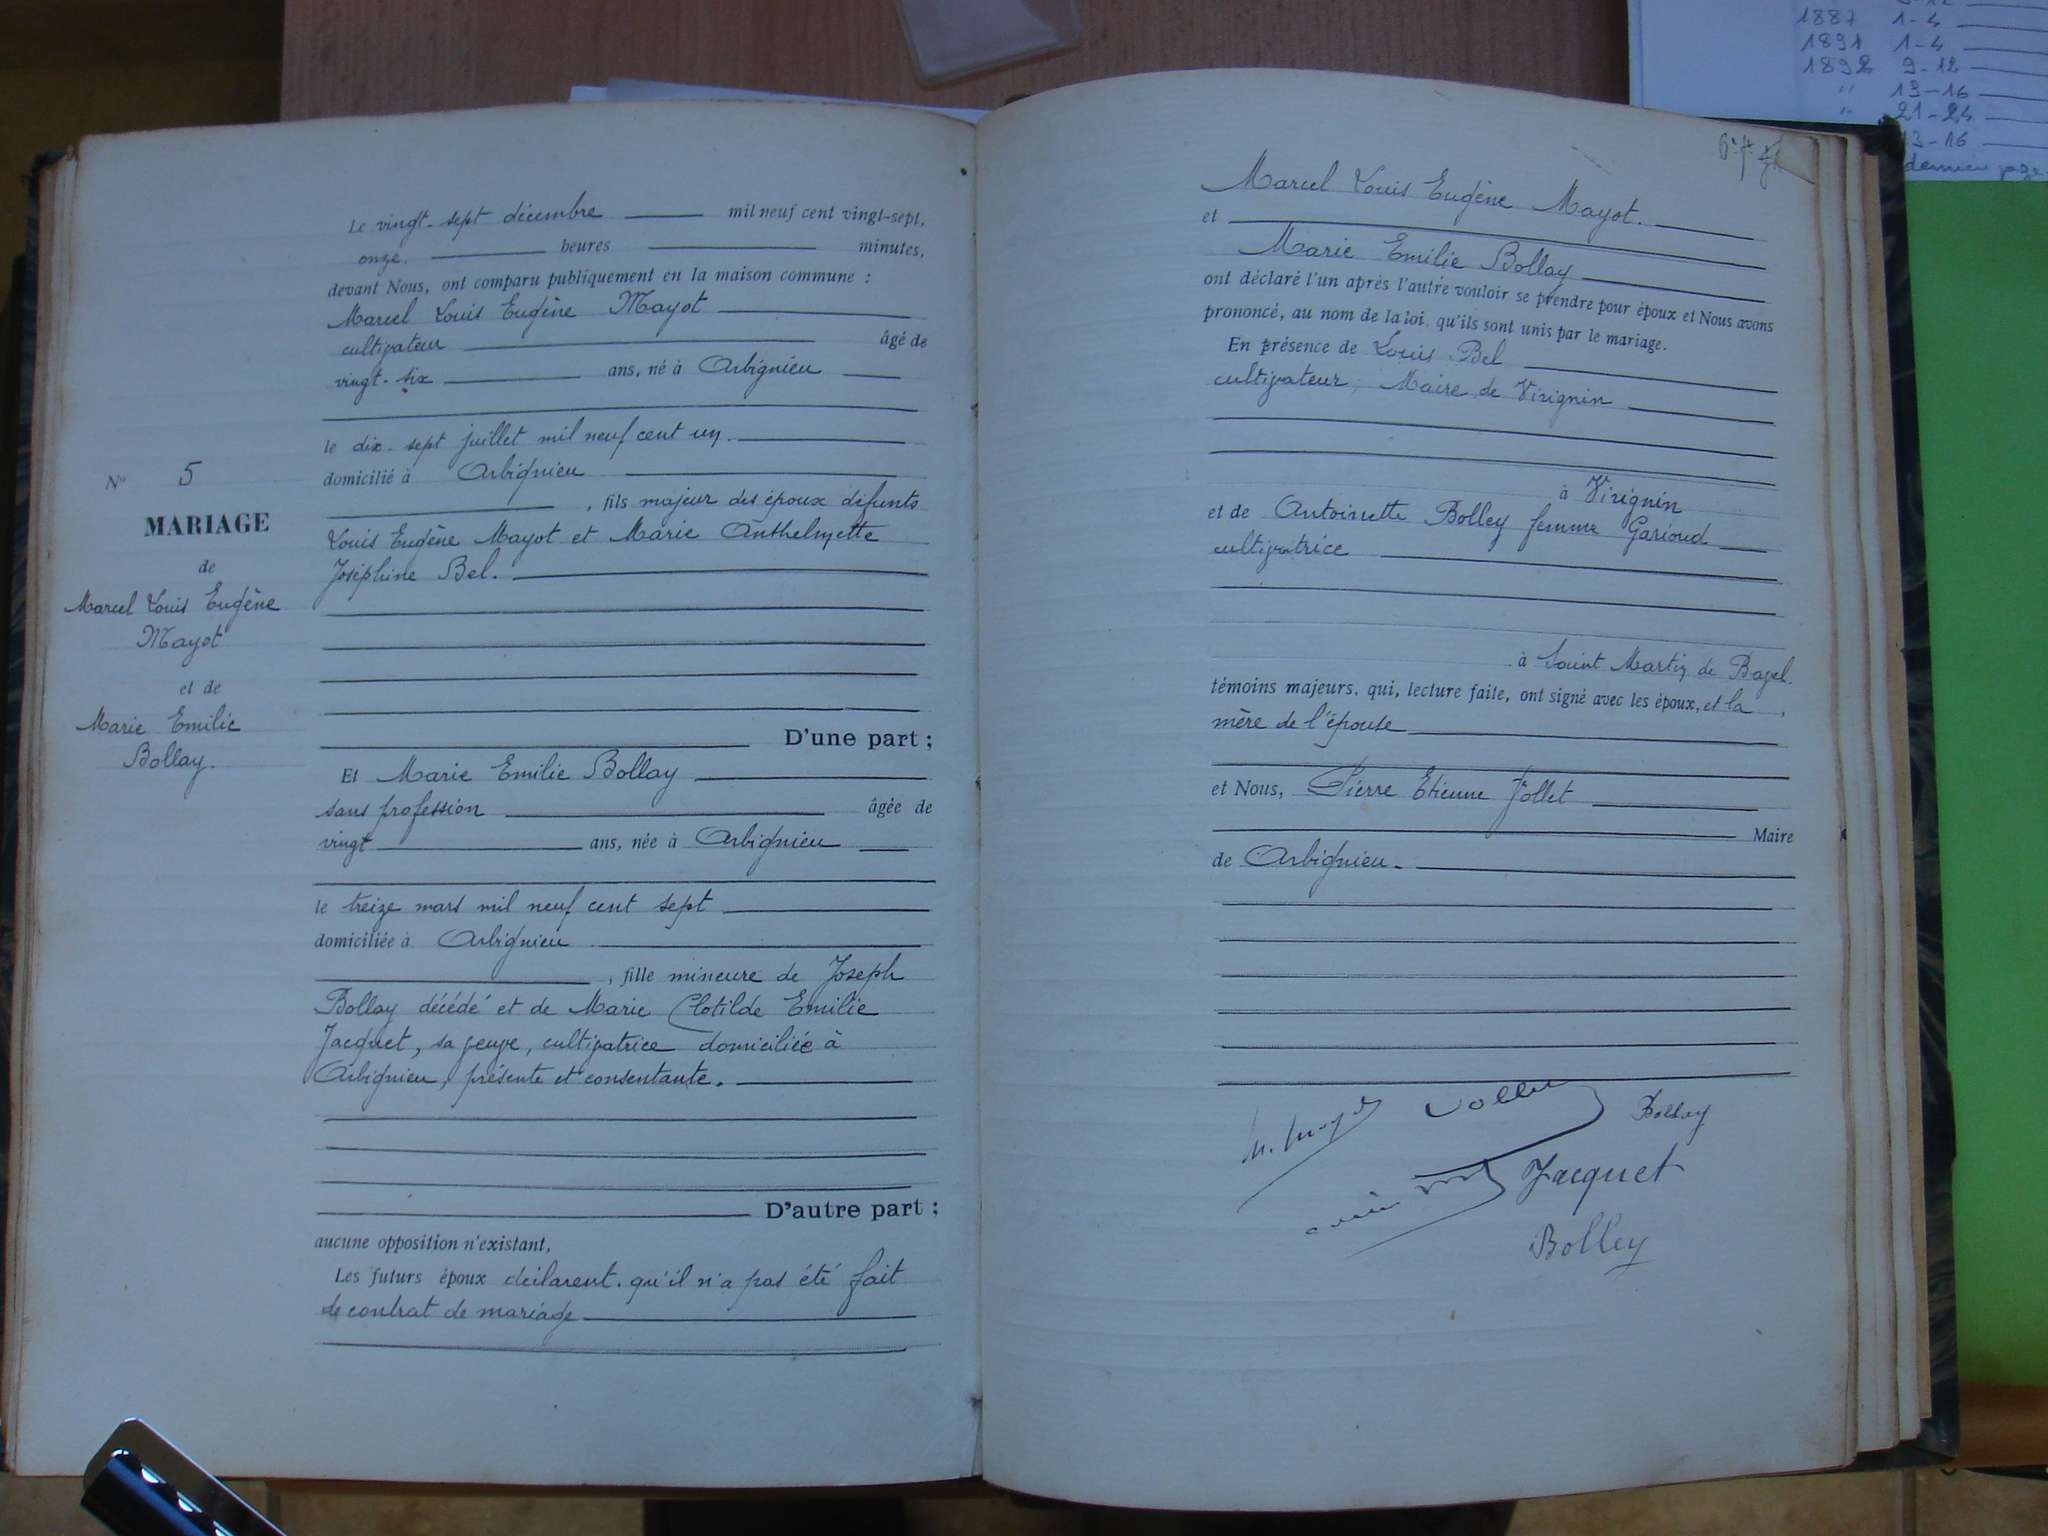 1887 1-4
1891 1-4
1892 9-12
" 13-16
" 21-24
13-16
dernière page
Le vingt-sept décembre mil neuf cent vingt-sept,
onze. heures minutes,
devant Nous, ont comparu publiquement en la maison commune :
Marcel Louis Eugène Mayot
cultivateur âgé de
vingt-six ans, né à Arbignieu
le dix-sept juillet mil neuf cent un.
domicilié à Arbignieu
, fils majeur des époux défunts
Louis Eugène Mayot et Marie Anthelmette
Joséphine Bel.
D'une part ;
Et Marie Emilie Bollay
sans profession âgée de
vingt ans, née à Arbignieu
le treize mars mil neuf cent sept
domiciliée à Arbignieu
, fille mineure de Joseph
Bollay décédé et de Marie Clotilde Emilie
Jacquet, sa veuve, cultivatrice domiciliée à
Arbignieu, présente et consentante.
D'autre part ;
aucune opposition n'existant,
Les futurs époux déclarent qu'il n'a pas été fait
de contrat de mariage
N° 5
MARIAGE
de
Marcel Louis Eugène
Mayot
et de
Marie Emilie
Bollay.
Marcel Louis Eugène Mayot.
et
Marie Emilie Bollay
ont déclaré l'un après l'autre vouloir se prendre pour époux et Nous avons
prononcé, au nom de la loi, qu'ils sont unis par le mariage.
En présence de Louis Bel
cultivateur, Maire de Virignin
à Virignin
et de Antoinette Bolley femme Garioud
cultivatrice
à Saint Martin de Bavel.
témoins majeurs, qui, lecture faite, ont signé avec les époux, et la
mère de l'épouse
et Nous, Pierre Etienne Jollet
Maire
de Arbignieu.
Bollay
Jacquet
Bolley